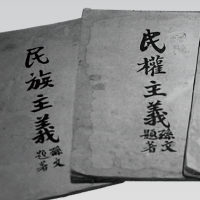 民權主義
孫文
題著
民族主義
孫文
題著